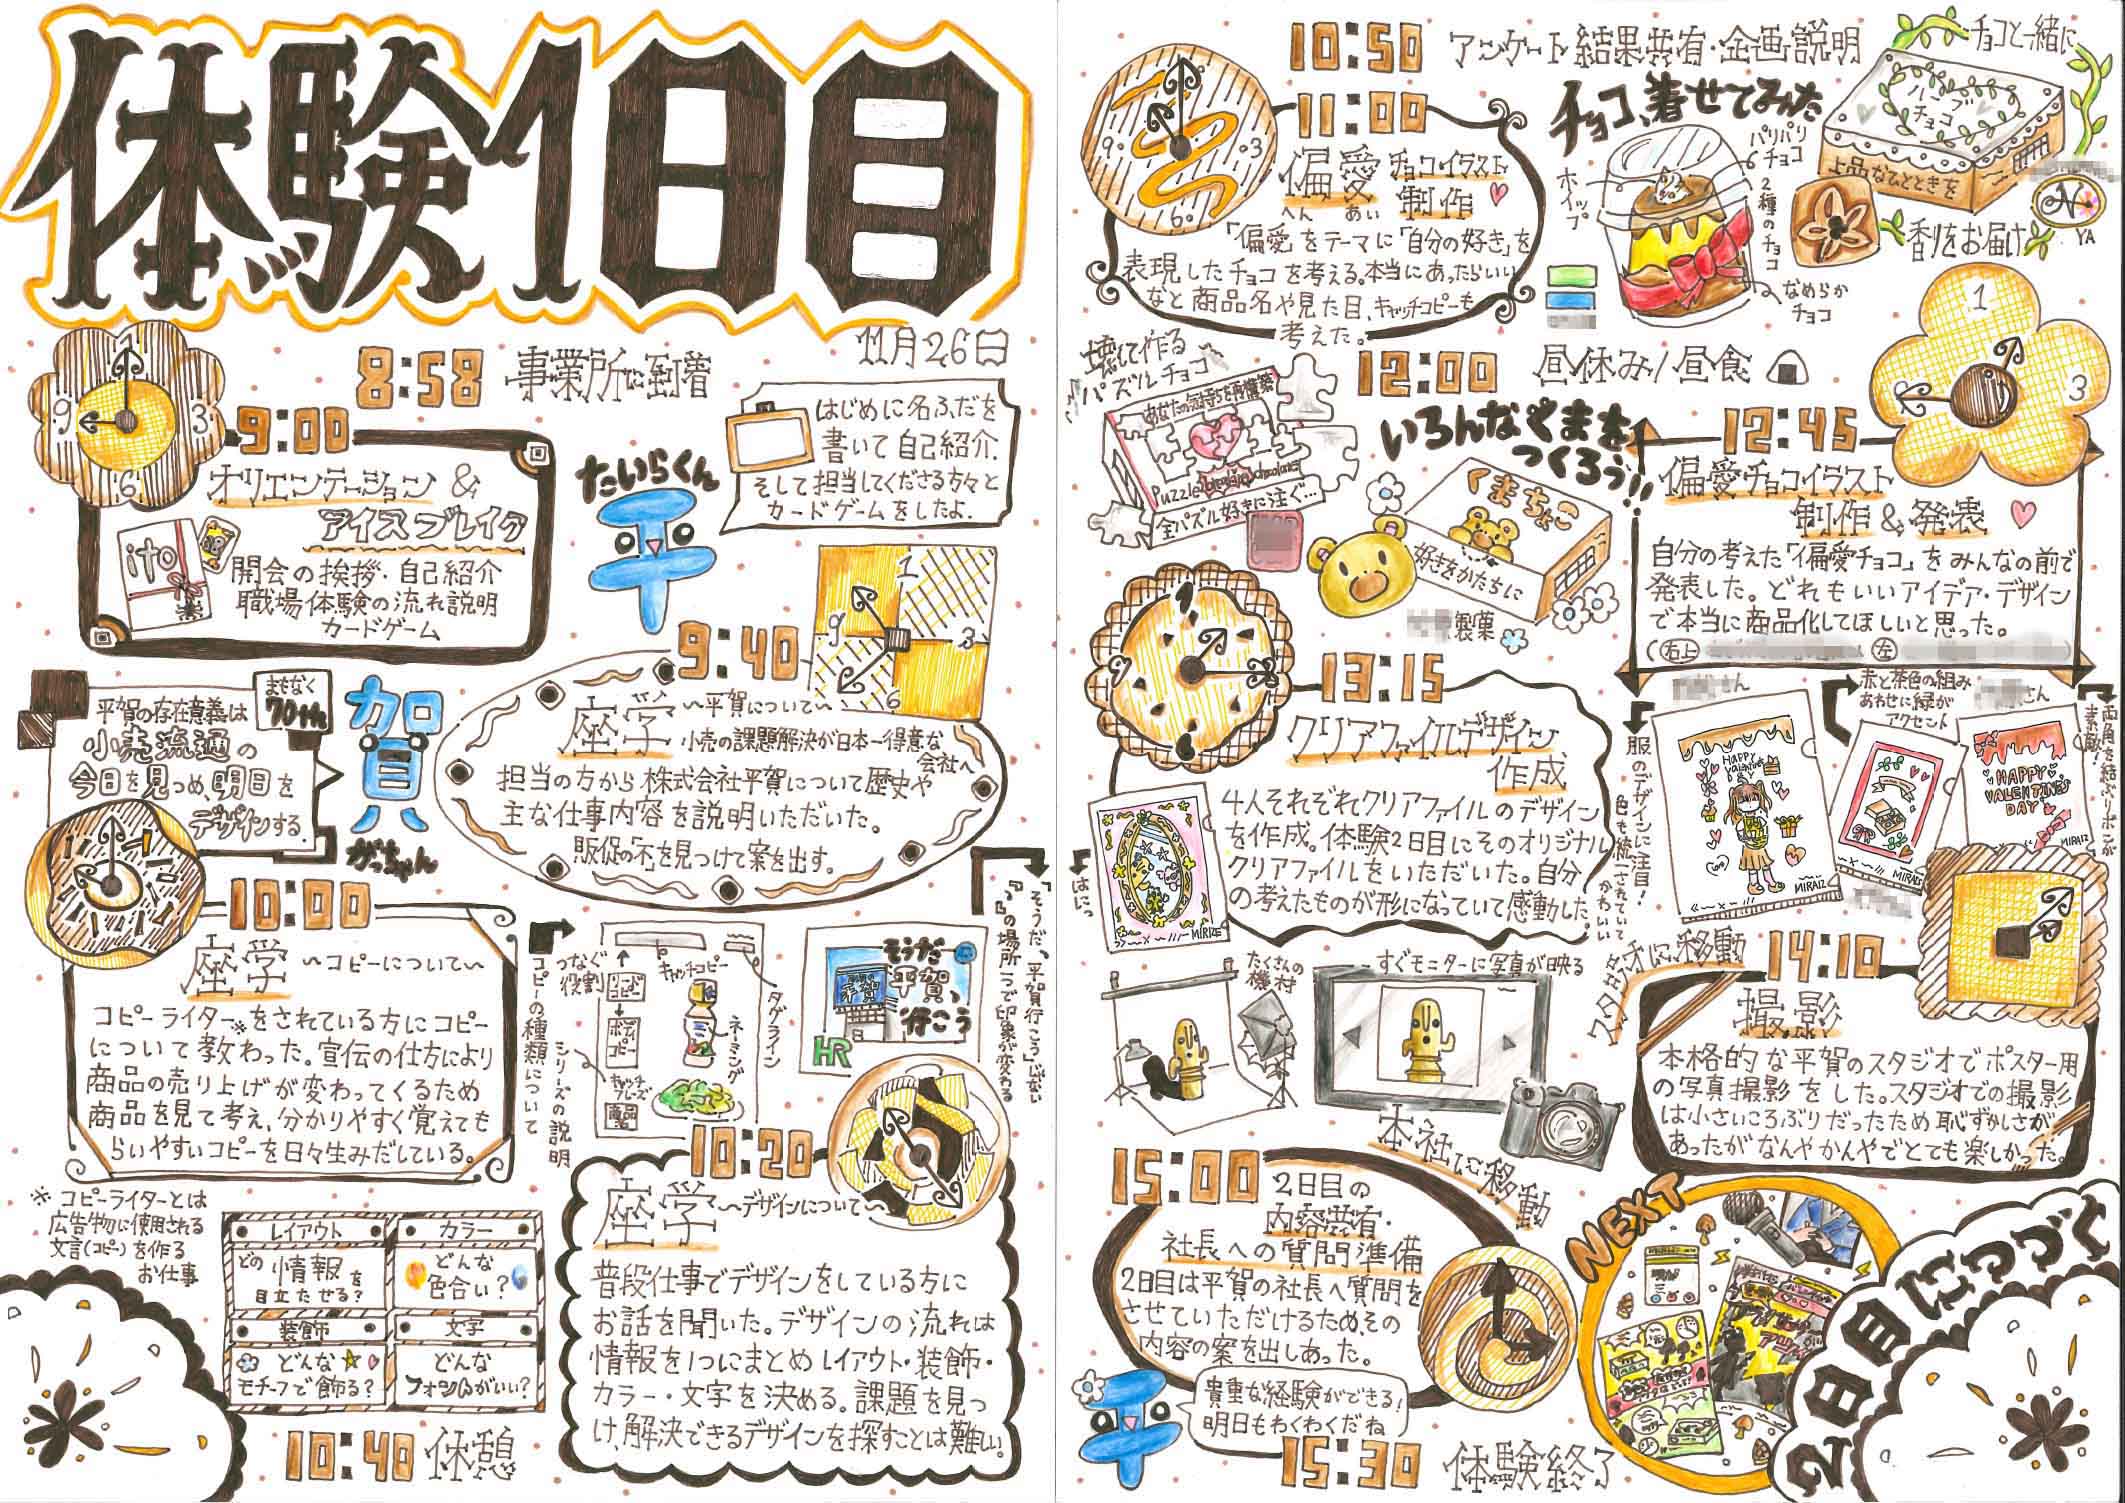 体験1日目
11月26日
8:58 事業所に到着
9:00
オリエンテーション&
アイスブレイク
ito
開会の挨拶・自己紹介
職場体験の流れ説明
カードゲーム
はじめに名ふだを
書いて自己紹介.
そして担当してくださる方々と
カードゲームをしたよ.
たいらくん
平
まもなく
70th
平賀の存在意義は
小売流通の
今日を見つめ、明日を
デザインする.
賀
がっちゃん
9:40
座学 〜平賀について〜
小売の課題解決が日本一得意な
会社へ
担当の方から株式会社平賀について歴史や
主な仕事内容を説明いただいた。
販促の「不」を見つけて案を出す。
10:00
座学 〜コピーについて〜
コピーライター※をされている方にコピー
について教わった。宣伝の仕方により
商品の売り上げが変わってくるため
商品を見て考え、分かりやすく覚えても
らいやすいコピーを日々生みだしている。
※コピーライターとは
広告物に使用される
文言(コピー)を作る
お仕事
コピーの種類について
つなぐ
役割
キャッチコピー
ボディ
コピー
キャッチ
フレーズ
商品
コピー
タグライン
ネーミング
シリーズの説明
そうだ
平賀、
行こう
HR
『そうだ、平賀行こう』じゃない
『、』の場所一つで印象が変わる
10:20
座学 〜デザインについて〜
普段仕事でデザインをしている方に
お話を聞いた。デザインの流れは
情報を1つにまとめレイアウト・装飾・
カラー・文字を決める。課題を見つ
け、解決できるデザインを探すことは難しい。
レイアウト
どの情報を
目立たせる?
カラー
どんな
色合い?
装飾
どんな
モチーフで飾る?
文字
どんな
フォントがいい?
10:40 休憩
10:50 アンケート結果共有・企画説明
11:00
偏愛チョコイラスト
へんあい
制作
「偏愛」をテーマに「自分の好き」を
表現したチョコを考える。本当にあったらいい
なと商品名や見た目、キャッチコピーも
考えた。
チョコ、着せてみた
パリパリ
チョコ
ホイップ
2種のチョコ
なめらか
チョコ
チョコと一緒に
ハーブ
チョコ
上品なひとときを
香りをお届け
YA
壊して作る
パズルチョコ
あなたの気持ちを再構築
Puzzle
全パズル好きに注ぐ…
12:00 昼休み/昼食
いろんなくまを
つくろう!!
くまちょこ
好きをかたちに
製菓
12:45
偏愛チョコイラスト
制作&発表
自分の考えた「偏愛チョコ」をみんなの前で
発表した。どれもいいアイデア・デザイン
で本当に商品化してほしいと思った。
(右上 左 )
13:15
クリアファイルデザイン
作成
4人それぞれクリアファイルのデザイン
を作成。体験2日目にそのオリジナル
クリアファイルをいただいた。自分
の考えたものが形になっていて感動した。
はにっ
さん
服のデザインに注目!
色も統一されていて
かわいい
赤と茶色の組み
あわせに緑が
アクセント
さん
両角を結ぶリボンが
素敵!
HAPPY
VALENTINE'S
DAY
スタジオに移動
14:10
撮影
本格的な平賀のスタジオでポスター用
の写真撮影をした。スタジオでの撮影
は小さいころぶりだったため恥ずかしさが
あったがなんやかんやでとても楽しかった。
たくさんの
機材
すぐモニターに写真が映る
本社に移動
15:00
2日目の
内容共有・
社長への質問準備
2日目は平賀の社長へ質問を
させていただけるため、その
内容の案を出しあった。
平
貴重な経験ができる!
明日もわくわくだね
15:30 体験終了
NEXT
2日目につづく